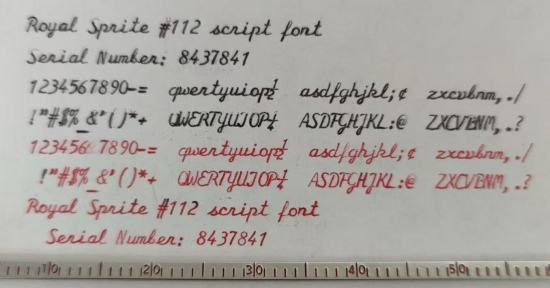 Royal Sprite #112 script font
Serial Number: 8437841
1234567890-= qwertyuiop½ asdfghjkl;¢ zxcvbnm,./
!"#$%_&'()*+ QWERTYUIOP¼ ASDFGHJKL:@ ZXCVBNM,.?
1234567890-= qwertyuiop½ asdfghjkl;¢ zxcvbnm,./
!"#$%_&'()*+ QWERTYUIOP¼ ASDFGHJKL:@ ZXCVBNM,.?
Royal Sprite #112 script font
Serial Number: 8437841
10 20 30 40 50